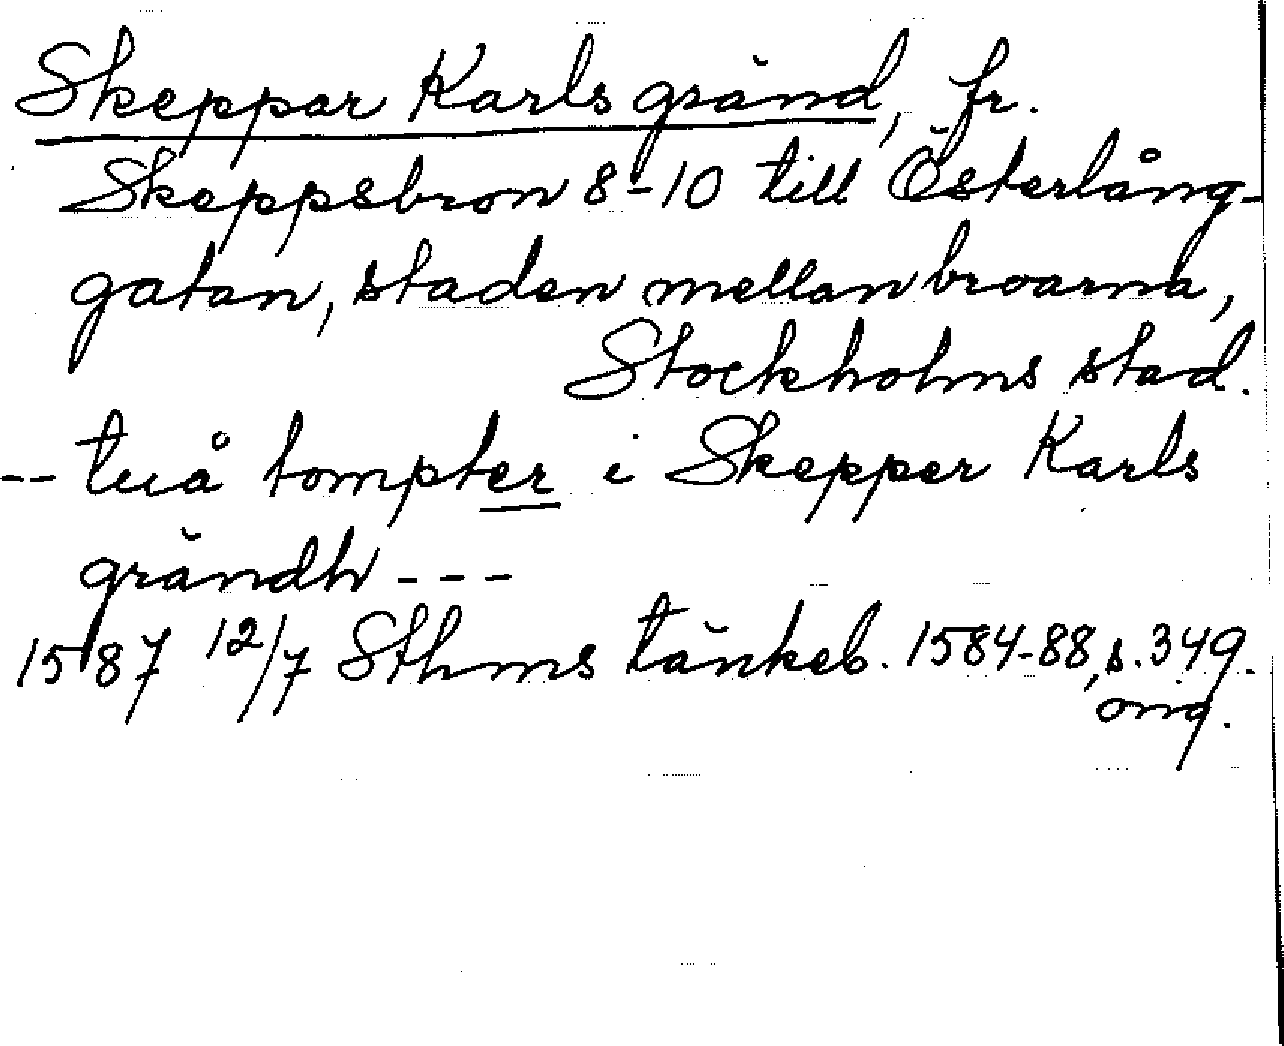 Skeppar Karls gränd, fr.
Skeppsbron 8-10 till Österlång-
gatan, staden mellan broarna,
Stockholms stad.
-- tuå tompter i Skepper Karls
grändh ---
1587 12/7 Sthms tänkeb. 1584-88, s. 349.
omg.